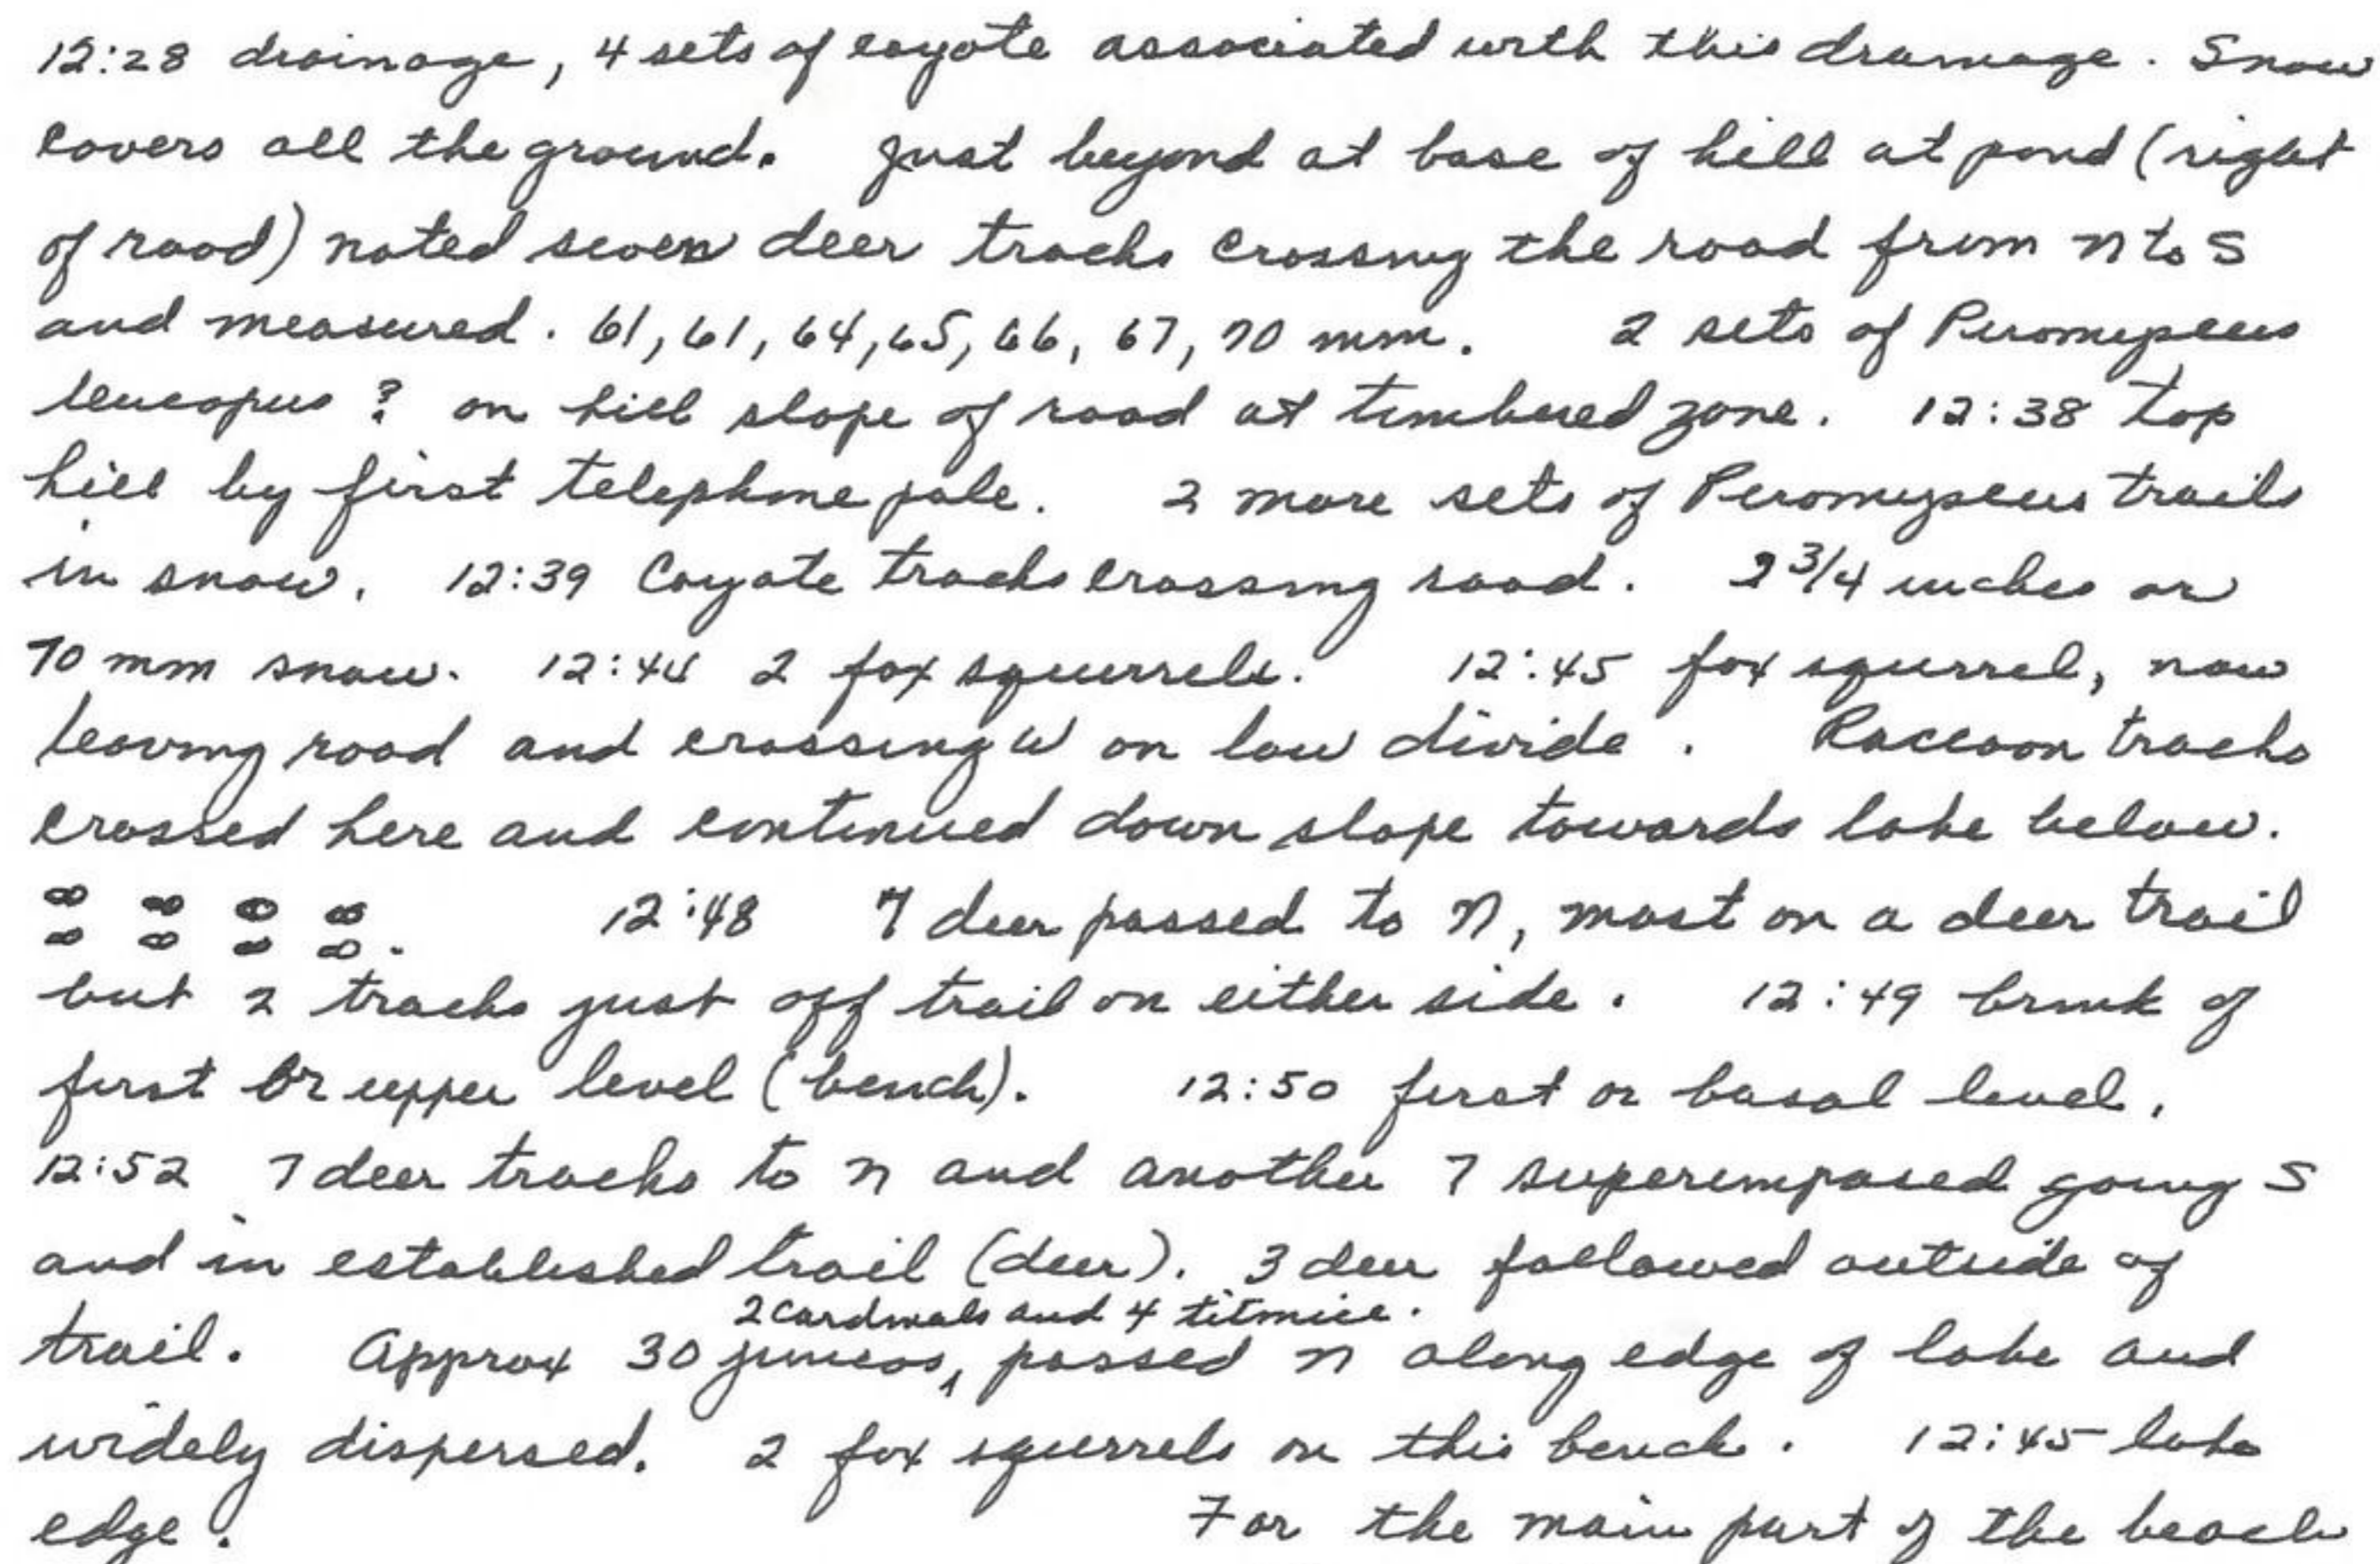 12:28 drainage, 4 sets of coyote associated with this drainage. Snow
covers all the ground. Just beyond at base of hill at pond (right
of road) noted seven deer tracks crossing the road from N to S
and measured. 61, 61, 64, 65, 66, 67, 70 mm. 2 sets of Peromyscus
leucopus? on hill slope of road at timbered zone. 12:38 top
hill by first telephone pole. 2 more sets of Peromyscus trails
in snow. 12:39 Coyote tracks crossing road. 2 3/4 inches or
70 mm snow. 12:44 2 fox squirrels. 12:45 fox squirrel, now
leaving road and crossing W on low divide. Raccoon tracks
crossed here and continued down slope towards lake below.
12:48 7 deer passed to N, most on a deer trail
but 2 tracks just off trail on either side. 12:49 brink of
first or upper level (bench). 12:50 first or basal level.
12:52 7 deer tracks to N and another 7 superimposed going S
and in established trail (deer). 3 deer followed outside of
2 cardinals and 4 titmice.
trail. Approx 30 juncos, passed N along edge of lake and
widely dispersed. 2 fox squirrels on this bench. 12:45 lake
edge. For the main part of the beach